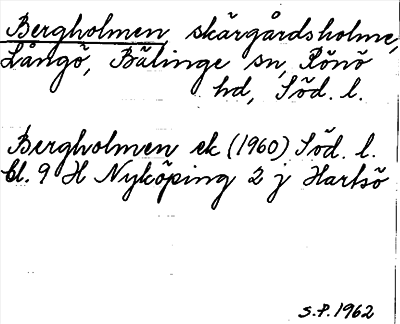 Bergholmen skärgårdsholme,
Långö, Bälinge sn, Rönö
hd, Söd. l.
Bergholmen ek (1960) Söd. l.
bl. 9 H Nyköping 2 j Hartsö
S.P. 1962